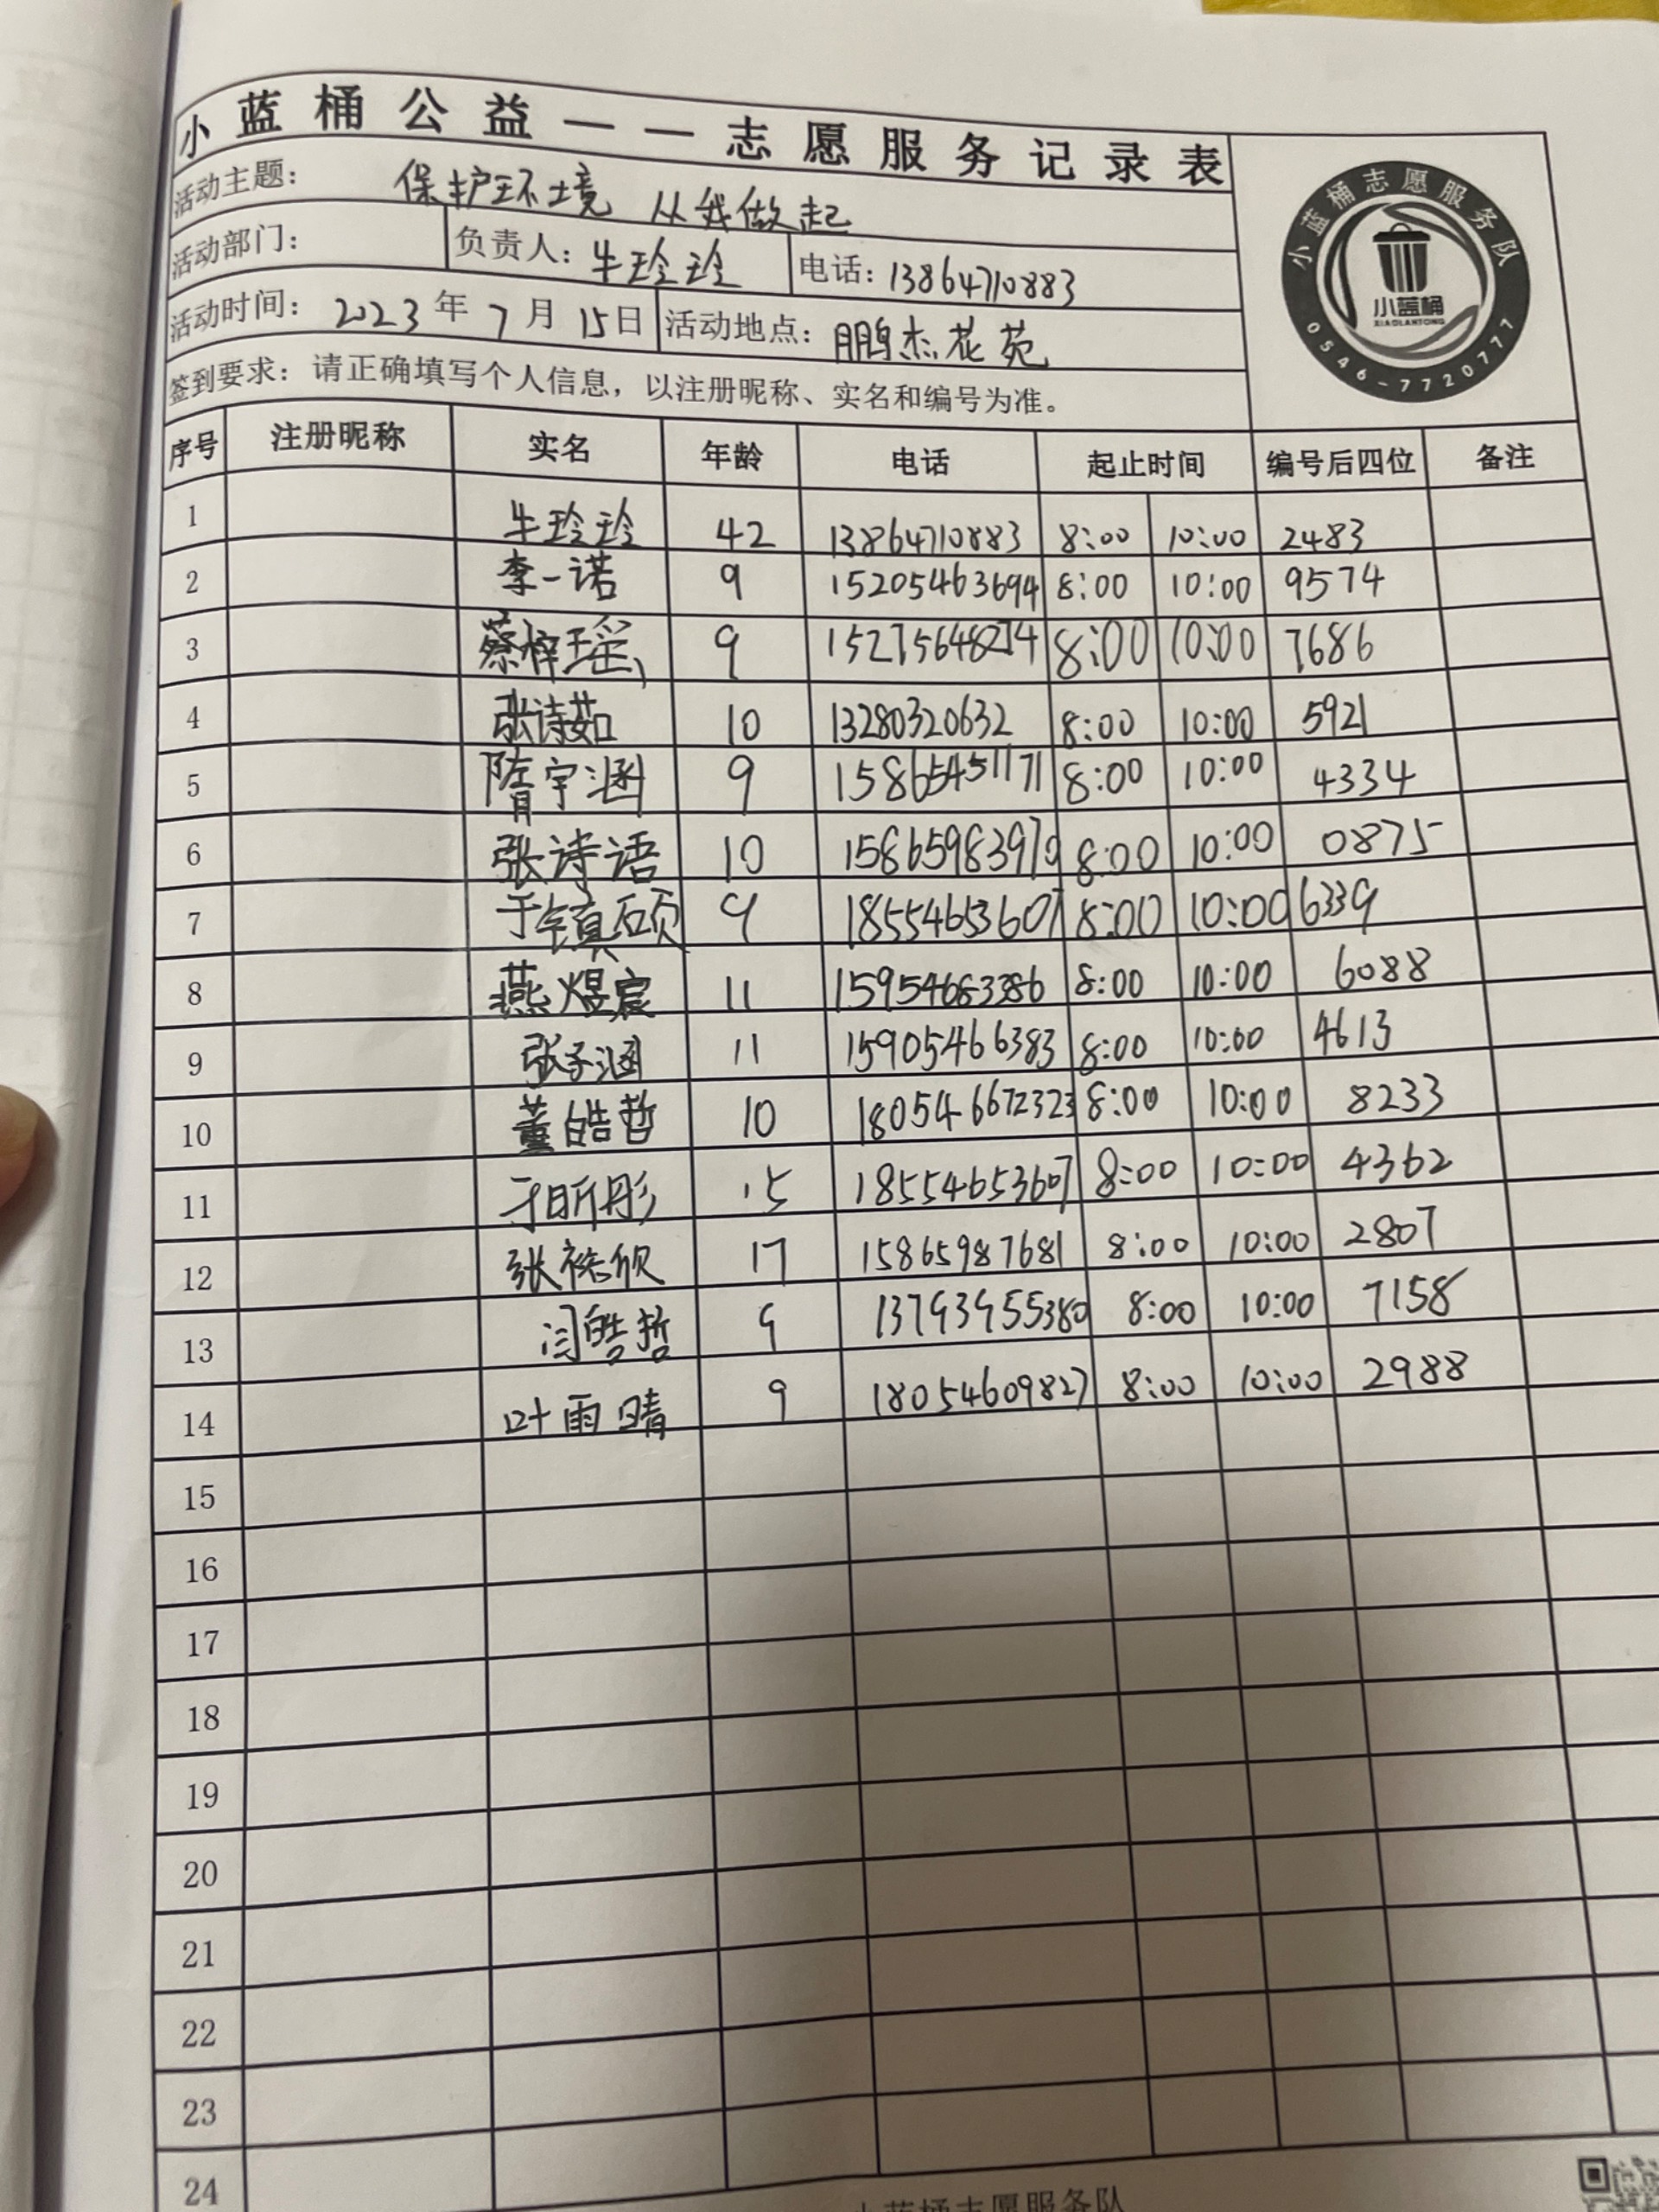 小蓝桶公益——志愿服务记录表
活动主题： 保护环境 从我做起
活动部门： 负责人：牛玲玲 电话：13864710883
活动时间： 2023年7月15日 活动地点：鹏杰花苑
签到要求：请正确填写个人信息，以注册昵称、实名和编号为准。
小蓝桶志愿服务队
小蓝桶
XIAOLANTONG
0546-7720777
序号 注册昵称 实名 年龄 电话 起止时间 编号后四位 备注
1 牛玲玲 42 13864710883 8:00 10:00 2483
2 李一诺 9 15205463694 8:00 10:00 9574
3 蔡梓瑶 9 15275648274 8:00 10:00 7686
4 张诗茹 10 13280320632 8:00 10:00 5921
5 隋宇涵 9 15865451171 8:00 10:00 4334
6 张诗语 10 15865983970 8:00 10:00 0875
7 于镇硕 9 18554653607 8:00 10:00 6339
8 燕煜宸 11 8:00 10:00 6088
9 张子涵 11 15905466383 8:00 10:00 4613
10 董皓哲 10 180546672323 8:00 10:00 8233
11 于昕彤 15 18554653607 8:00 10:00 4362
12 张祐欣 17 15865987681 8:00 10:00 2807
13 闫皓哲 9 13793955380 8:00 10:00 7158
14 叶雨晴 9 18054609827 8:00 10:00 2988
15
16
17
18
19
20
21
22
23
24
小蓝桶志愿服务队